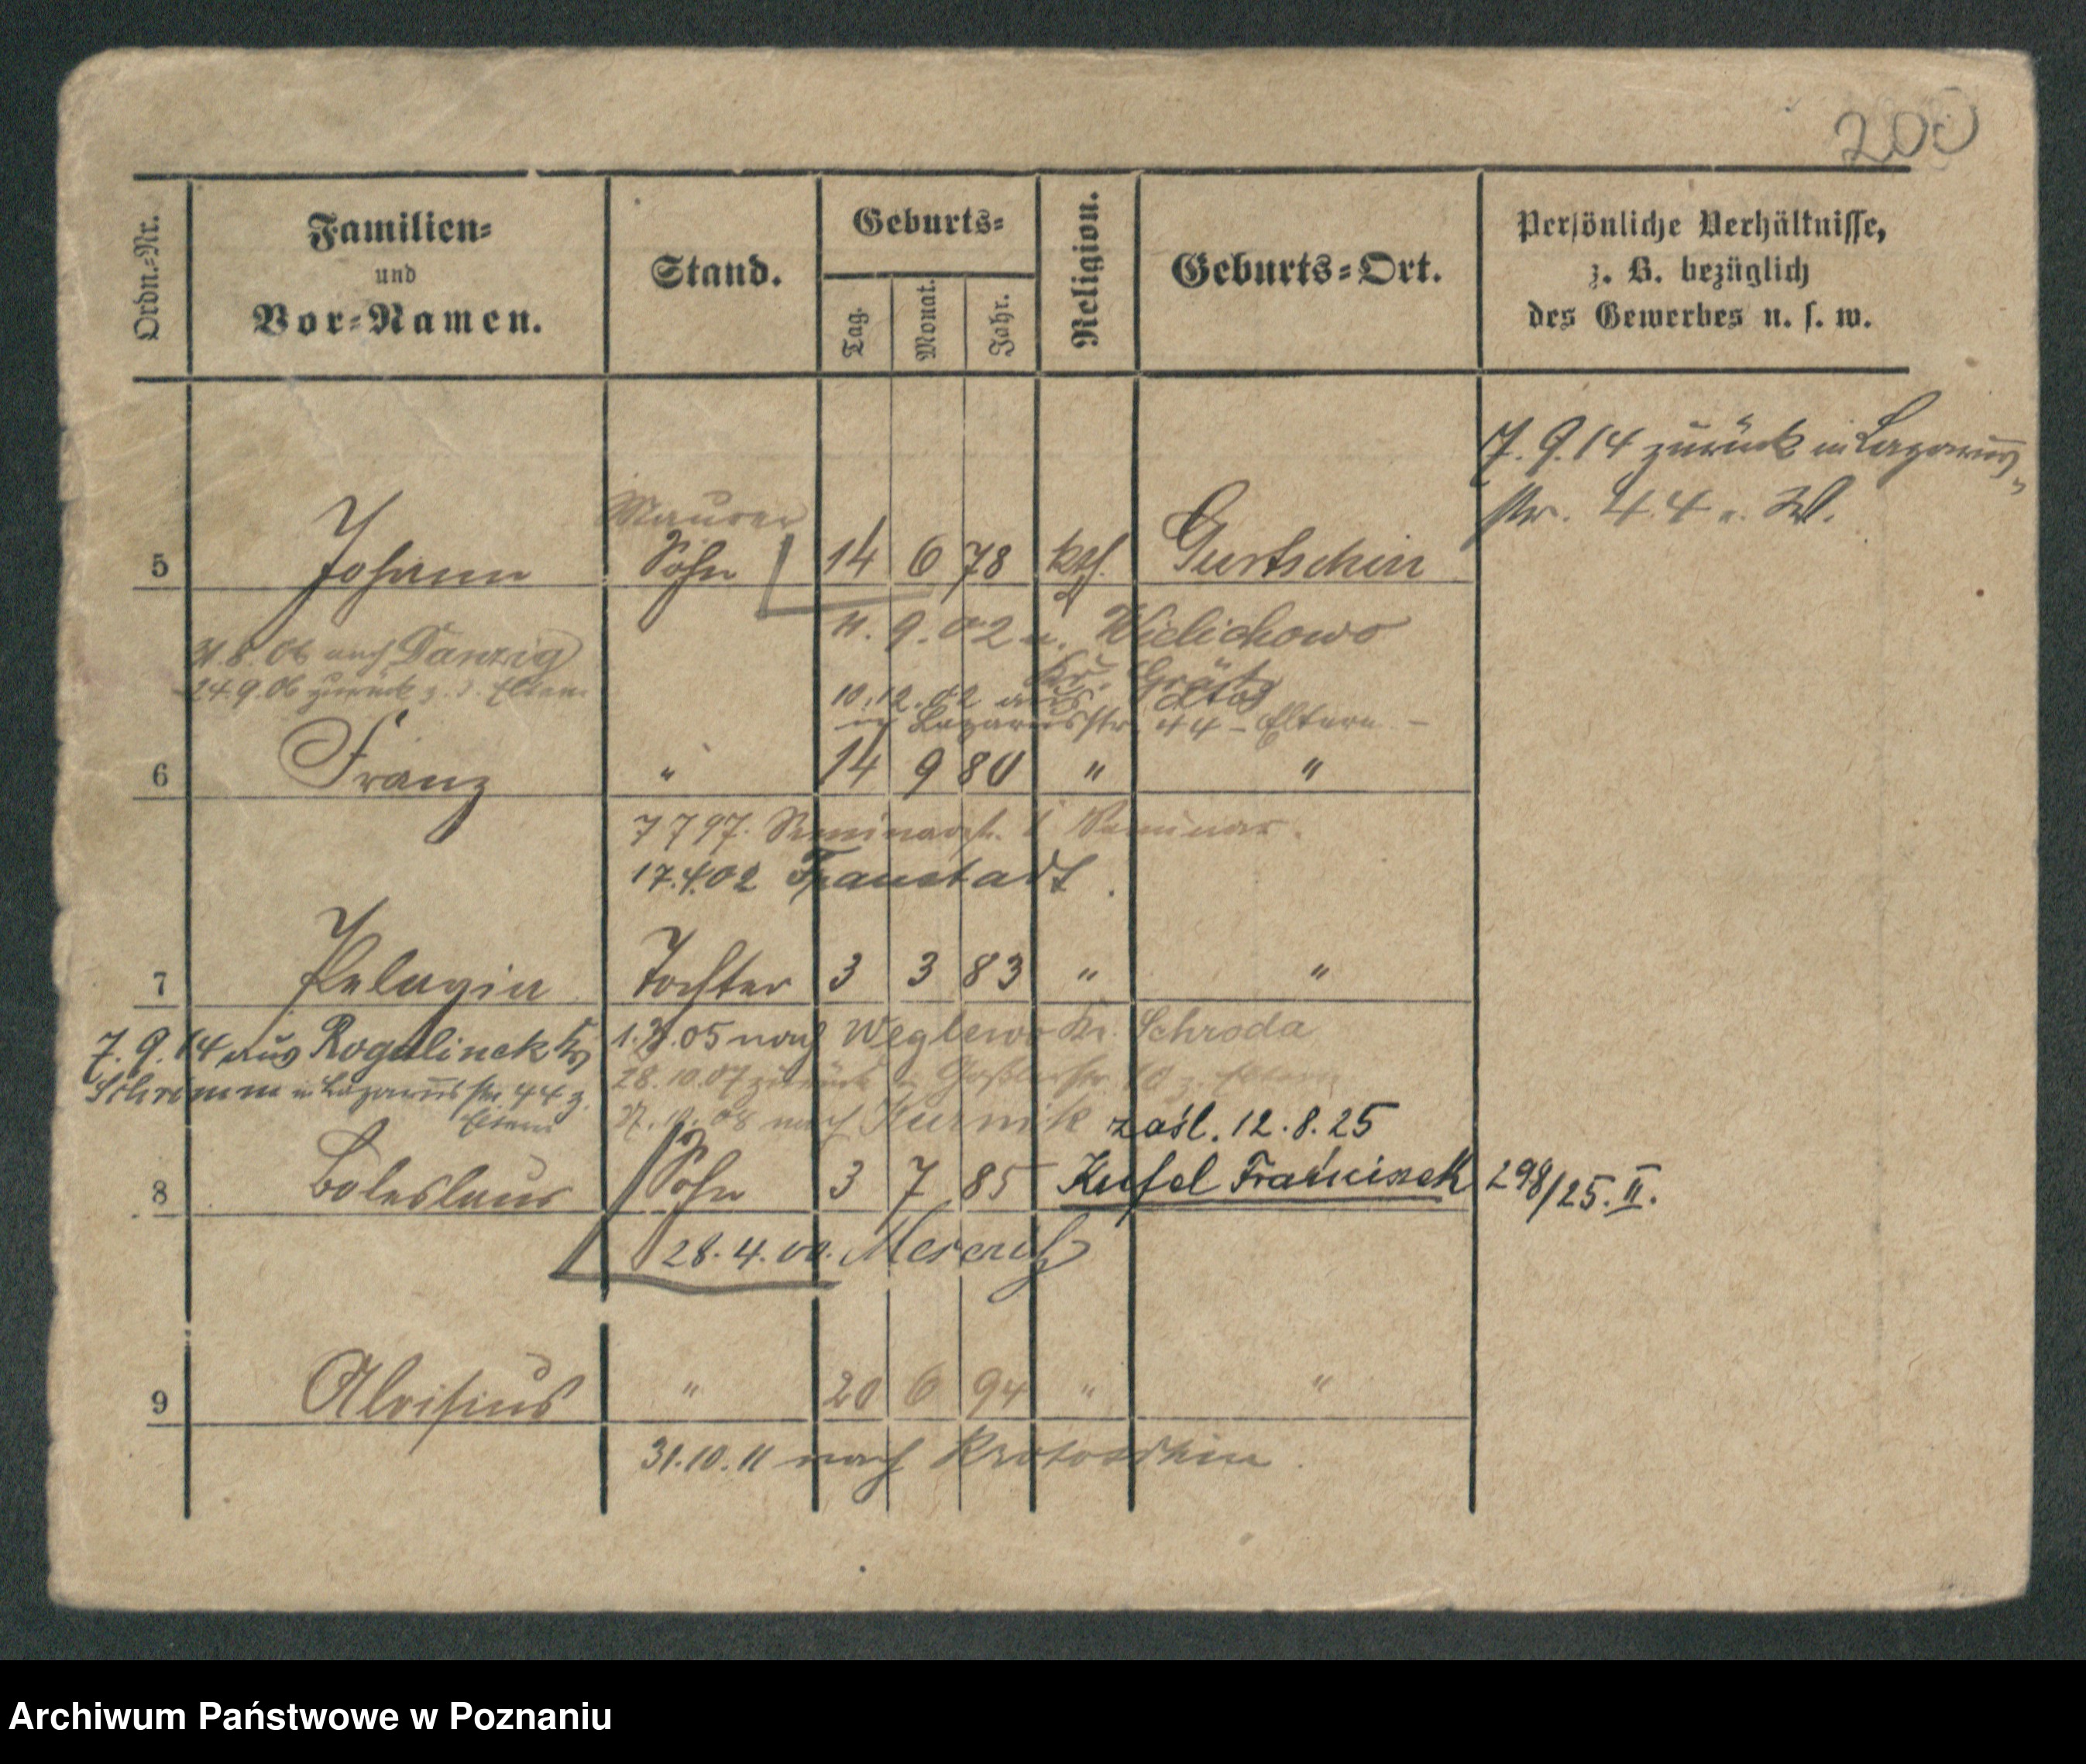 200
Ordn.-Nr.
Familien-
und
Vor-Namen.
Stand.
Geburts-
Tag.
Monat.
Jahr.
Religion.
Geburts-Ort.
Persönliche Verhältnisse,
z. B. bezüglich
des Gewerbes u. s. w.
7. 9. 14 zurück in Lazarus-
str. 44
Maurer
5 Johann Sohn 14 6 78 kth. Gurtschin
11. 9. 02 n. Wielichowo
Kr. Grätz
nach Danzig
24. 9. 06 zurück z. d. Eltern
10. 12. 02 aus
Lazarusstr. 44 - Eltern -
6 Franz " 14 9 80 " "
7 7 97. Seminar.
17.4.02 Fraustadt.
7 Pelagia Tochter 3 3 83 " "
7. 9. 14 aus Rogalinek Kr.
Schrimm in Lazarusstr 44 z.
Eltern
05 nach Weglewo Kr. Schroda
28. 10. 07 zurück
08 nach Kurnik
zaśl. 12. 8. 25
8 Boleslaus Sohn 3 7 85 Kufel Franciszek 298/25. II.
28. 4. 00. Meseritz
9 Aloisius " 20 6 94 " "
31. 10. 11 nach Krotoschin.
Archiwum Państwowe w Poznaniu